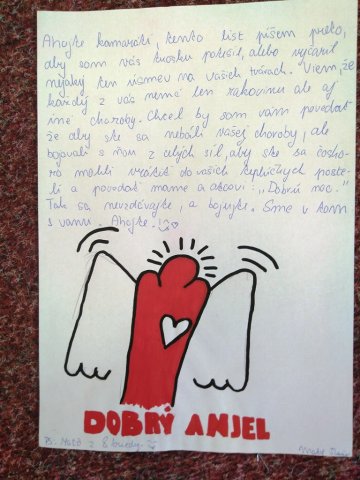 Ahojte kamaráti, tento list píšem preto,
aby som vás trošku potešil, alebo vyčaril
nejaký ten úsmev na vašich tvárach. Viem, že
každý z vás nemá len rakovinu ale aj
iné choroby. Chcel by som vám povedať
že aby ste sa nebáli vašej choroby, ale
bojovali s ňou z celých síl, aby ste sa čosko-
ro mohli vrátiť do vašich teplučkých poste-
lí a povedať mame a otcovi: „Dobrú noc."
Tak sa nevzdávajte, a bojujte. Sme v tom
s vami. Ahojte.
DOBRÝ ANJEL
PS: z 8 triedy